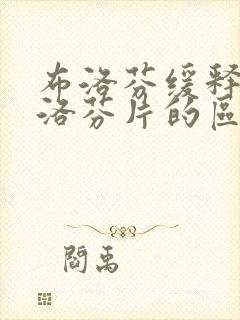 布洛芬缓释
洛芬片的區
閻禹